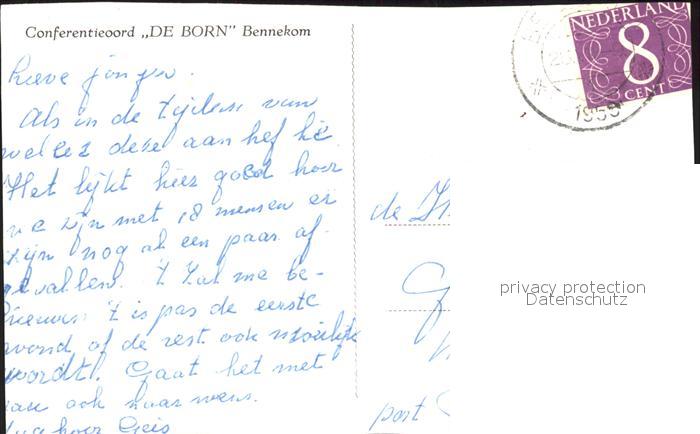 Conferentieoord „DE BORN" Bennekom
NEDERLAND
8
CENT
1958
Lieve jongen.
Als in de tijden van
deze aan het
Het lijkt hier goed hoor
we zijn met 18 mensen er
zijn nog al een paar af-
gevallen. 't Zal me be-
nieuwen 't is pas de eerste
avond of de rest ook moeilijk
wordt. Gaat het met
jou ook naar wens.
de
privacy protection
Datenschutz
post